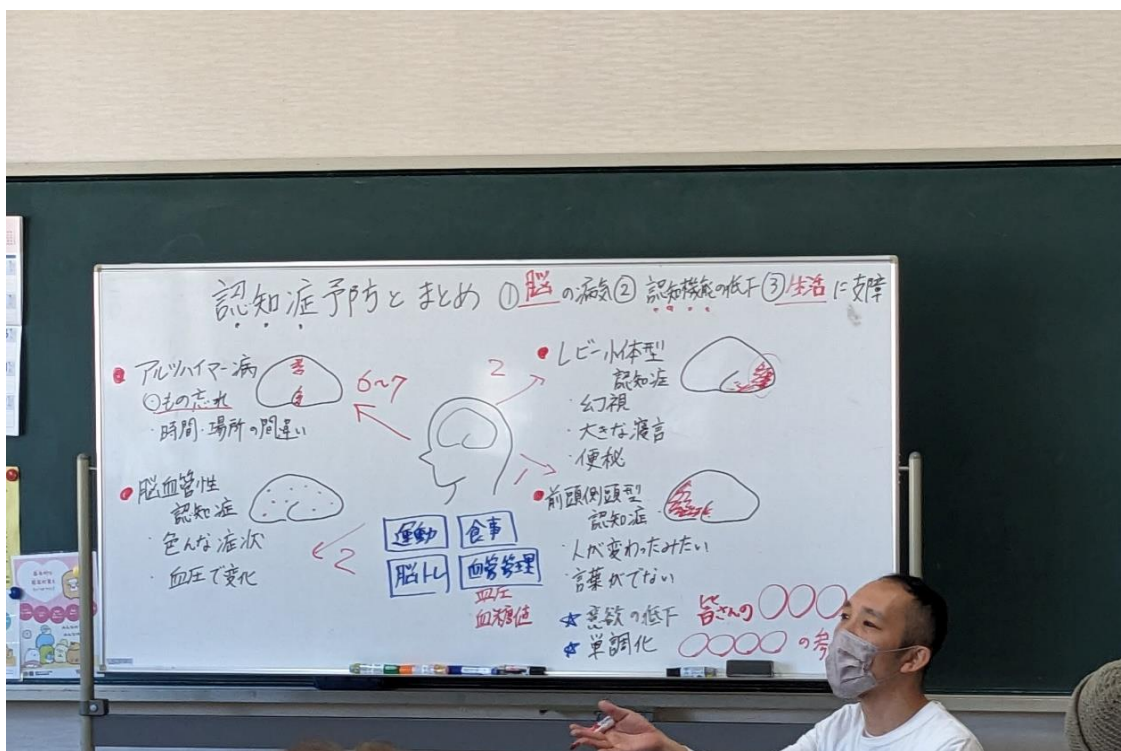 認知症予防とまとめ ①脳の病気② 認知機能の低下③生活に支障
●アルツハイマー病
⊙もの忘れ
・時間・場所の間違い
6〜7
●脳血管性
認知症
・色んな症状
・血圧で変化
2
2
●レビー小体型
認知症
・幻視
・大きな寝言
・便秘
1
●前頭側頭型
認知症
・人が変わったみたい
・言葉がでない
☆意欲の低下
☆単調化
運動 食事
脳トレ 血管管理
血圧
血糖値
皆さんの〇〇〇
〇〇〇〇の参